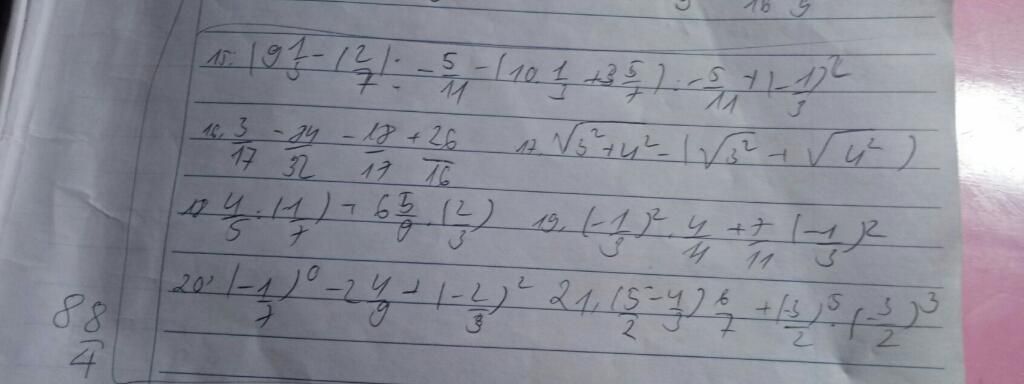 16 9
15. (9 1/3 - (2/7) : -5/11 - (10 1/3 + 3 5/7) : -5/11 + (-1/3)²
16. 3/17 - 24/32 - 18/17 + 26/16 17. √3²+4² - (√3² + √4²)
18 4/5 · (1/7) - 6 5/9 · (2/3) 19. (-1/3)² · 4/11 + 7/11 (-1/3)²
20. (-1/7)⁰ - 2 4/9 + (-2/3)² 21. (5/2 - 4/3) 6/7 + (3/2)⁵ · (3/2)³
88/4